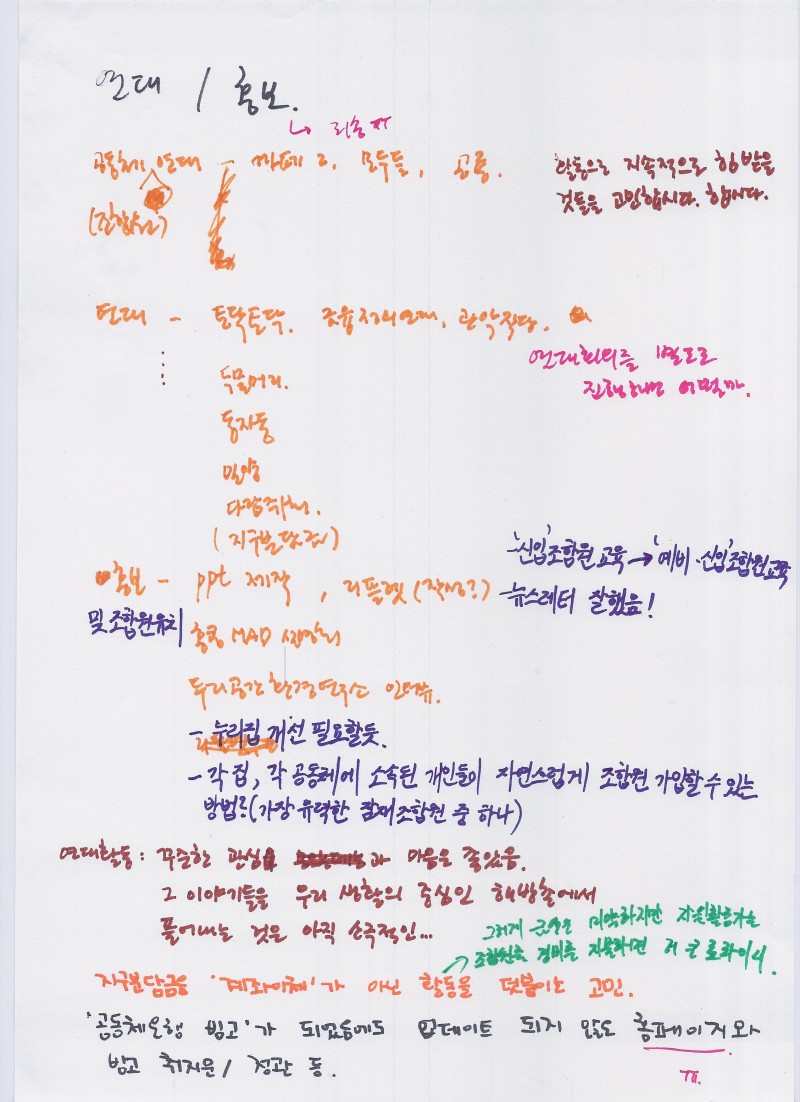 연대 / 홍보.
↳ 리송
공동체 연대 - 까페 오, 모두들, 공룡.
(진합)
활동으로 지속적으로 할 받을
것들을 고민합시다. 합시다.
연대 - 토닥토닥. 조율 연대, 관악작당.
연대회의를 별도로
진행하면 어떨까.
두물머리.
동자동
밀양
(지구분담금)
'신입'조합원 교육 → '예비·신입'조합원교육
홍보 - ppt 제작, 리플렛 (작성?)
- 뉴스레터 잘했음!
및 조합원유치
홍콩 MAD
두리공간환경연구소 인터뷰.
- 누리집 개선 필요할듯.
- 각 집, 각 공동체에 소속된 개인들이 자연스럽게 조합원 가입할 수 있는
방법?(가장 유력한 잠재조합원 중 하나)
연대활동 : 꾸준한 관심과 마음은 좋았음.
그 이야기들을 우리 생활의 중심인 해방촌에서
풀어내는 것은 아직 소극적인...
그렇게 미약하지만 자원활동가는
조합원을 경비를 지불하면
지구분담금을 '계좌이체'가 아닌 활동을 덧붙이는 고민.
'공동체은행 빈고'가 되었음에도 업데이트 되지 않은 홈페이지와
빈고 취지문 / 정관 등.
ㅠ.